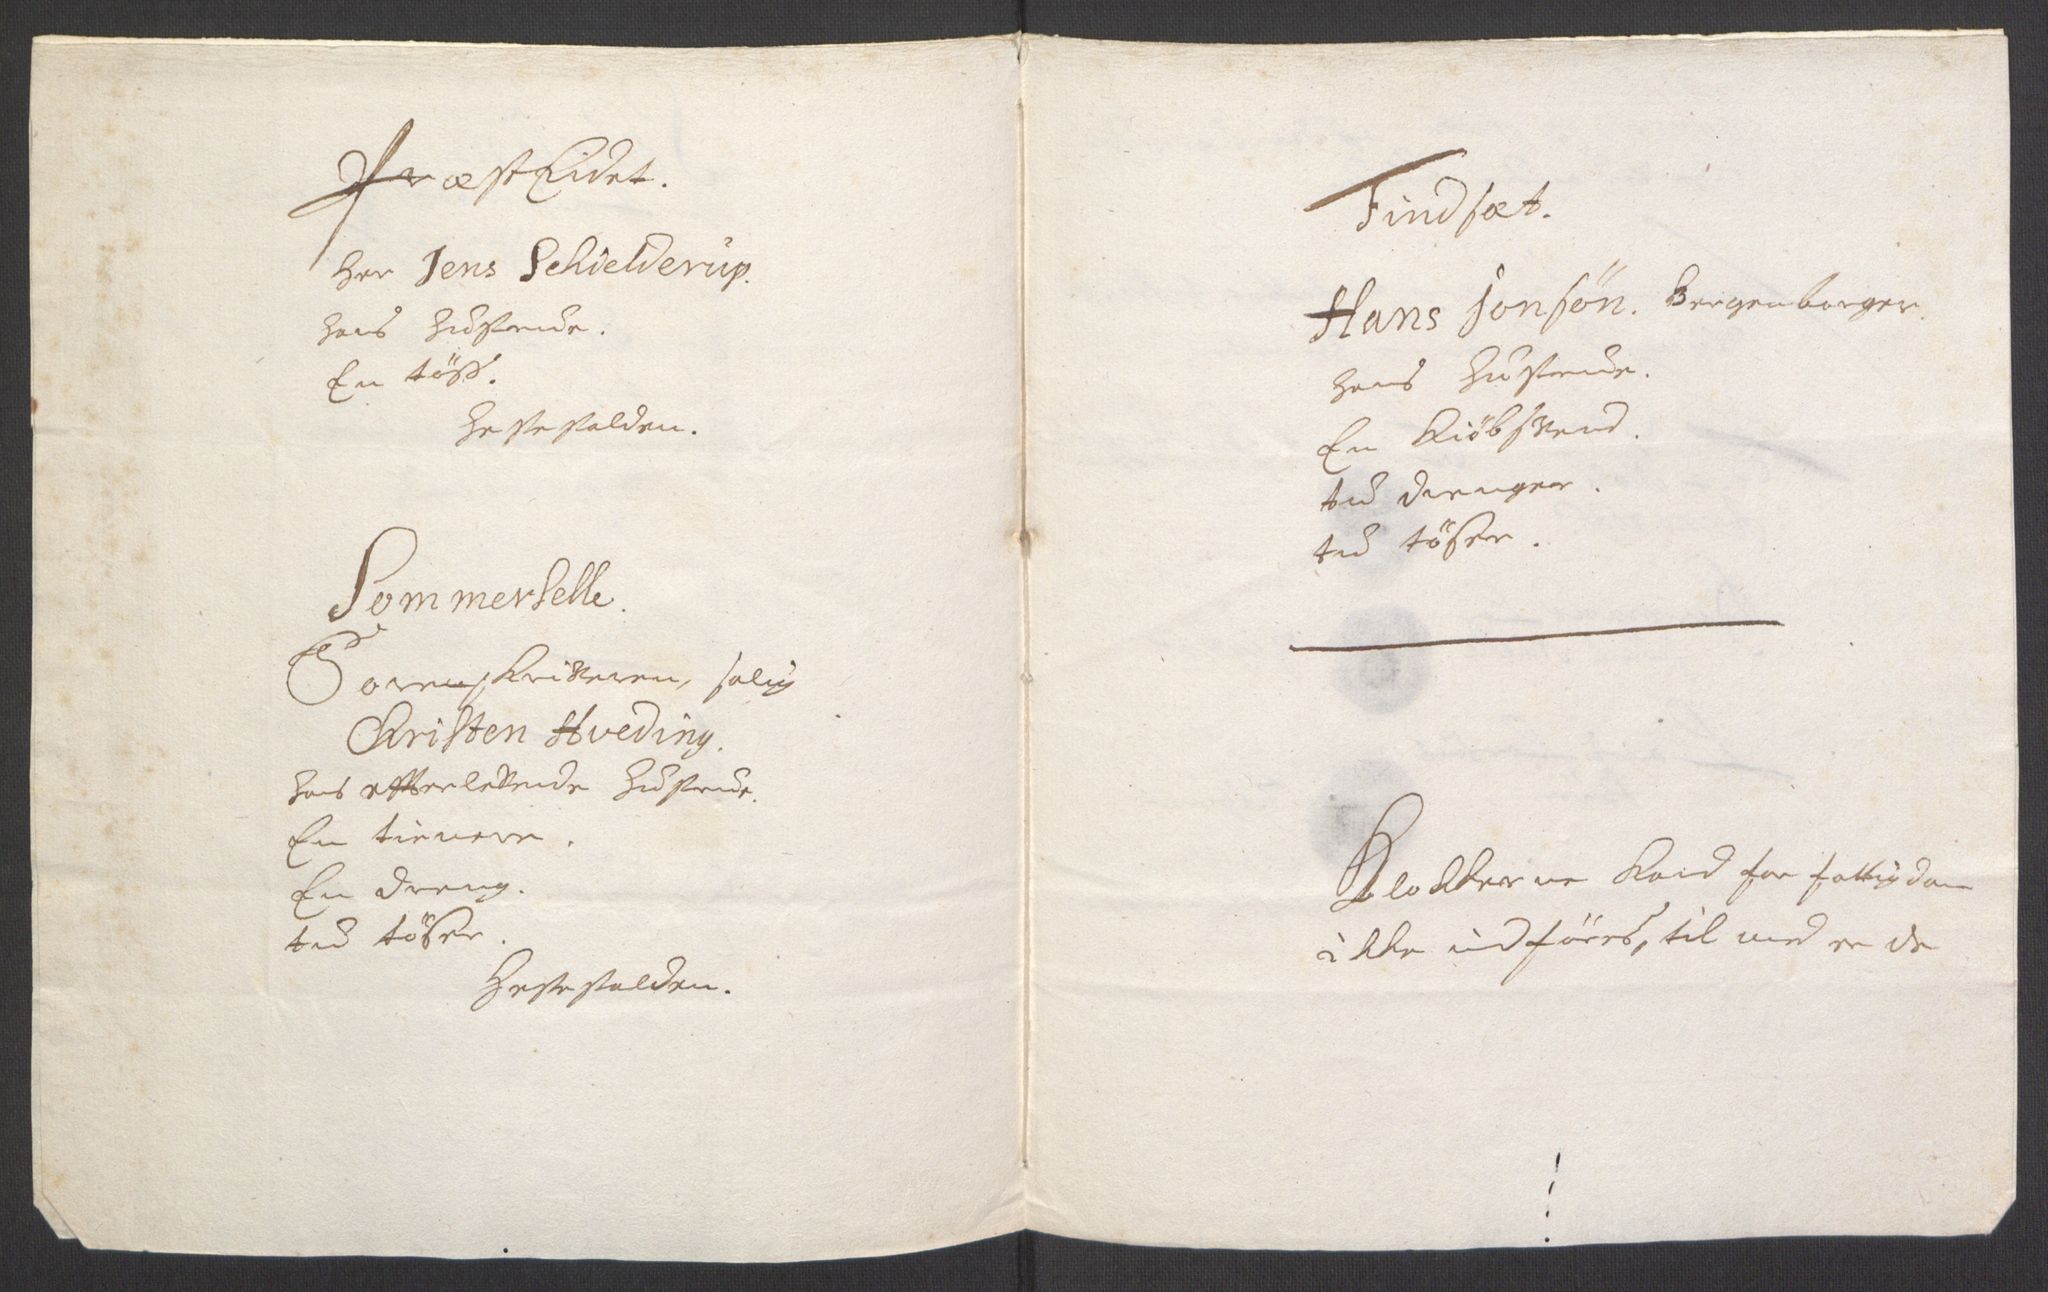 Præst Eidet.
Her Jens Schielderup.
hans hustrue.
En töss.
Heste stalden.
Sommerselle.
Sorenskriveren, salig
Kristen Hveding.
hans effterlevende hustrue.
En tienere.
En dreng.
tu töser.
Heste stalden.
Findsæt.
Hans Jonsön. Bergenborger.
hans hustrue.
En Kiöbsvend.
tu drenger.
tu töser.
Klokkerne kand for fattigdom
ikke indföres, til med er de